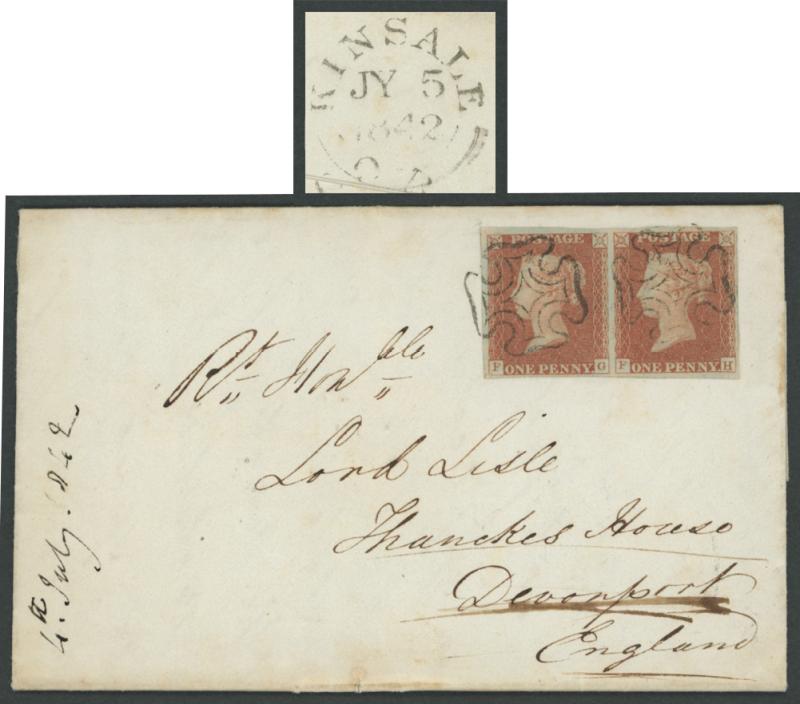 KINSALE
JY 5
1842
POSTAGE POSTAGE
F ONE PENNY G F ONE PENNY H
Rt Honble
Lord Lisle
Thanckes House
Devonport
England
4th July. 1842